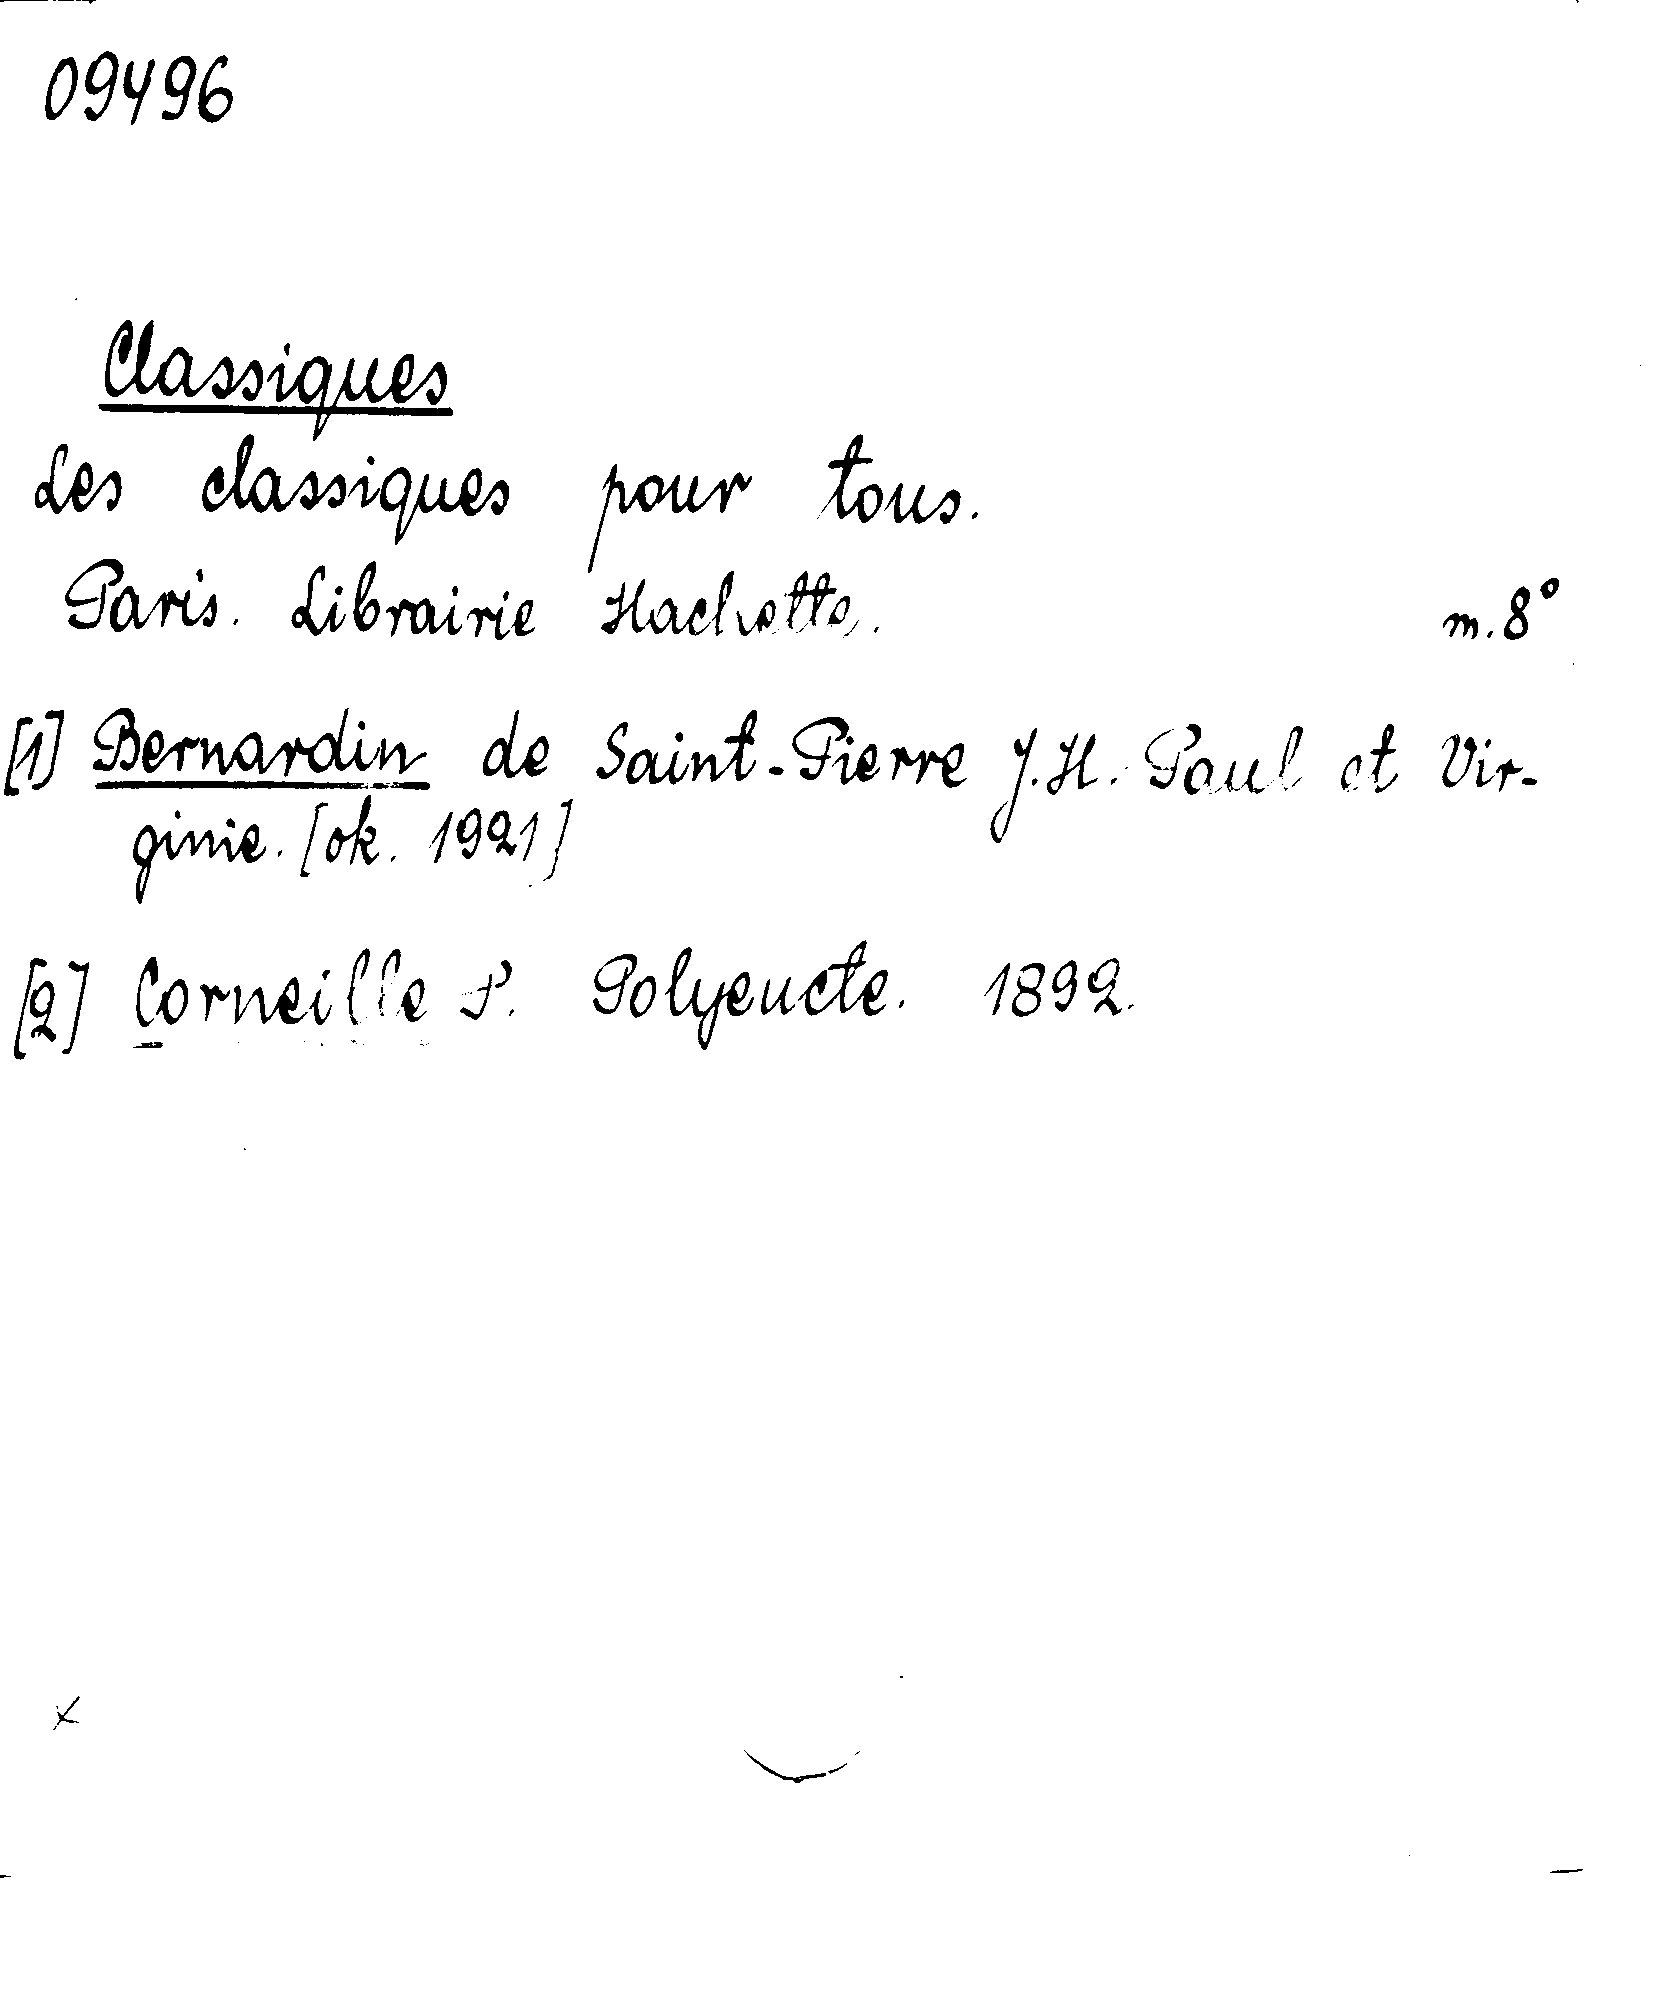 09496
Classiques
Les classiques pour tous.
Paris. Librairie Hachette. m. 8°
[1] Bernardin de Saint-Pierre J. H. Paul et Vir-
ginie. [ok. 1921]
[2] Corneille P. Polyeucte. 1892.
x